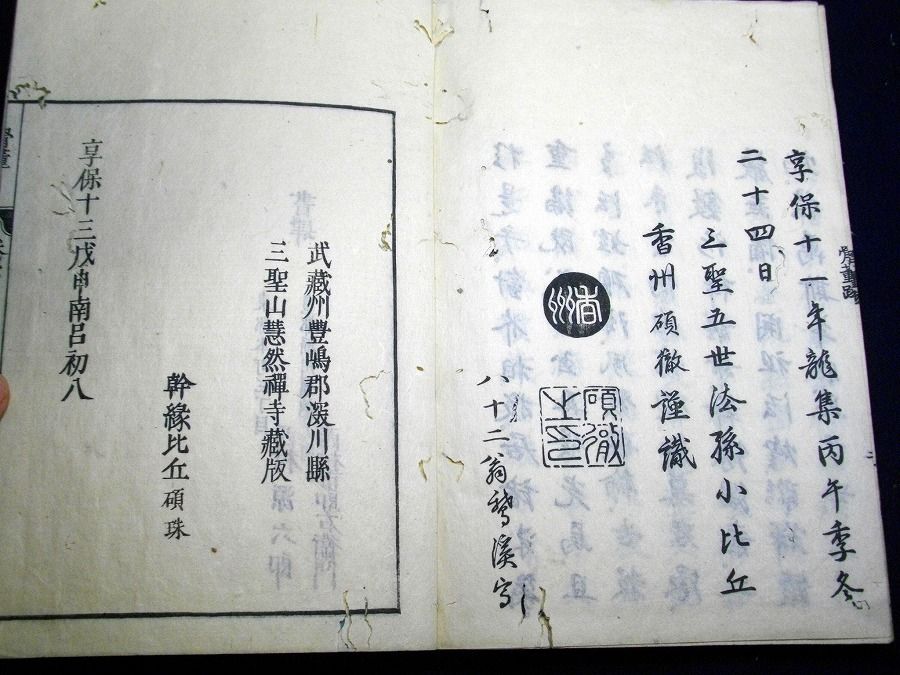 享保十一年龍集丙午季冬
二十四日
三聖五世法孫小比丘
香州碩徹謹識
香州
碩徹之印
八十二翁鵞溪写
武藏州豐嶋郡澁川縣
三聖山慧然禪寺藏版
幹緣比丘碩珠
享保十三戊申南呂初八